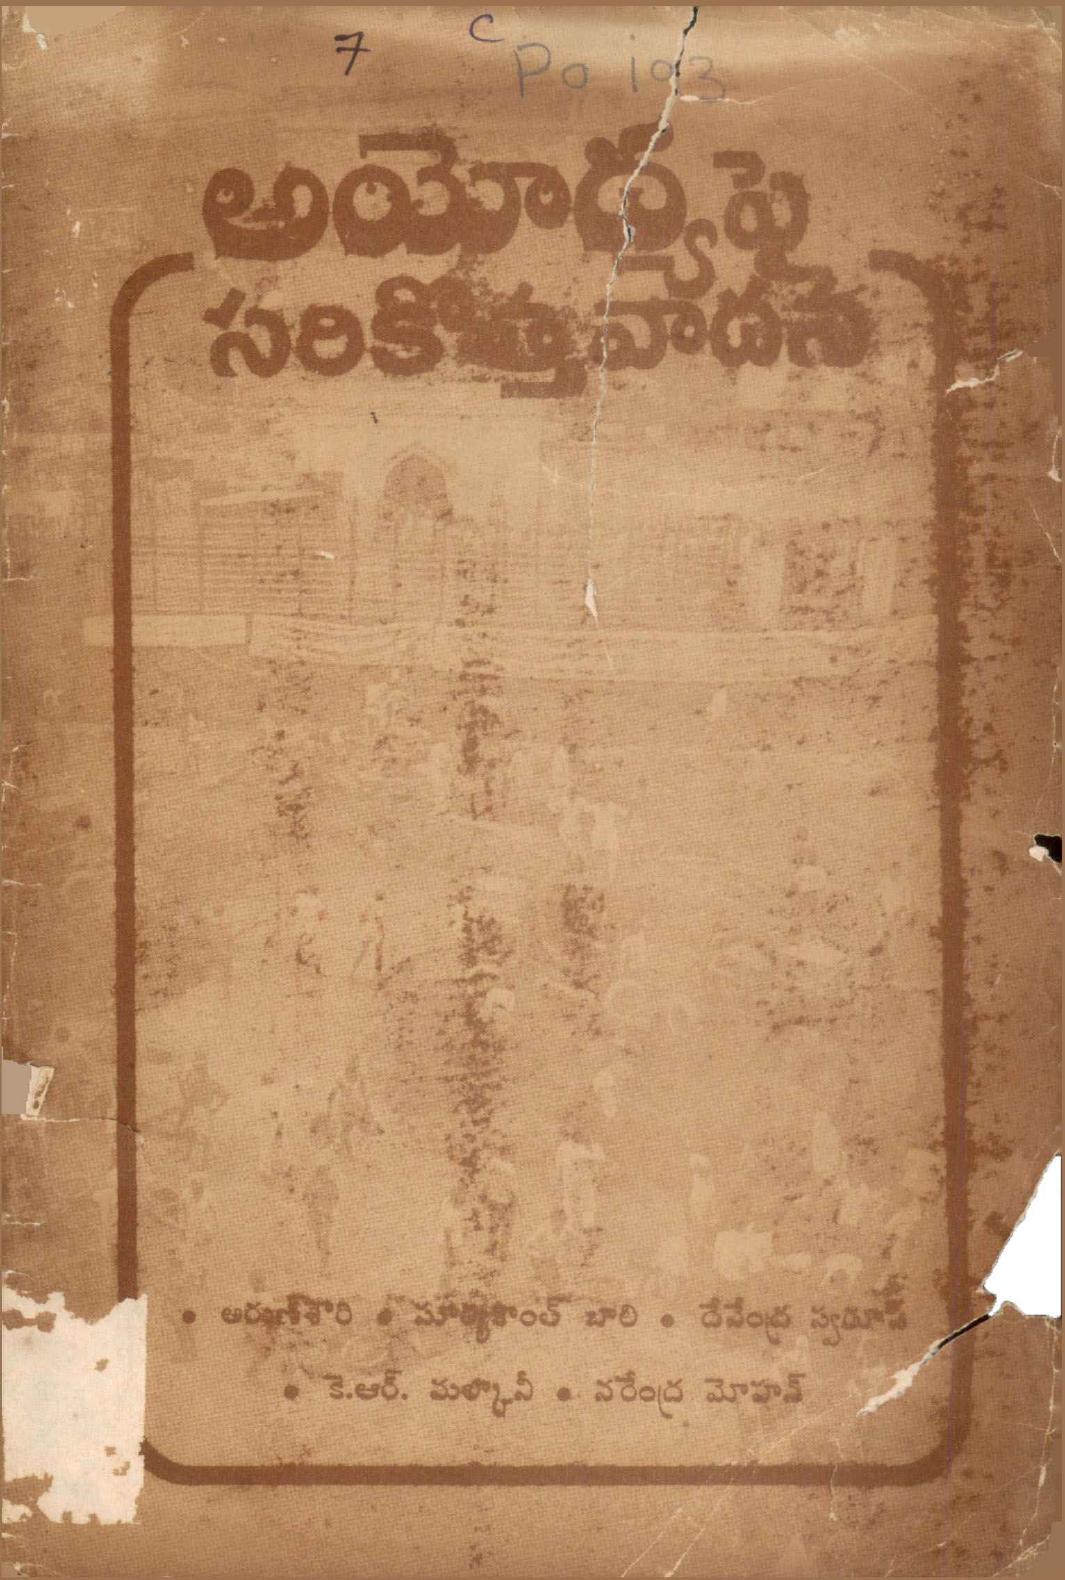 7 C
Po 103
అయోధ్యపై
సరికొత్త వాదన
• అరుణ్‌శౌరి • సూర్యకాంత్ బాలి • దేవేంద్ర స్వరూప్
• కె.ఆర్. మల్కానీ • నరేంద్ర మోహన్